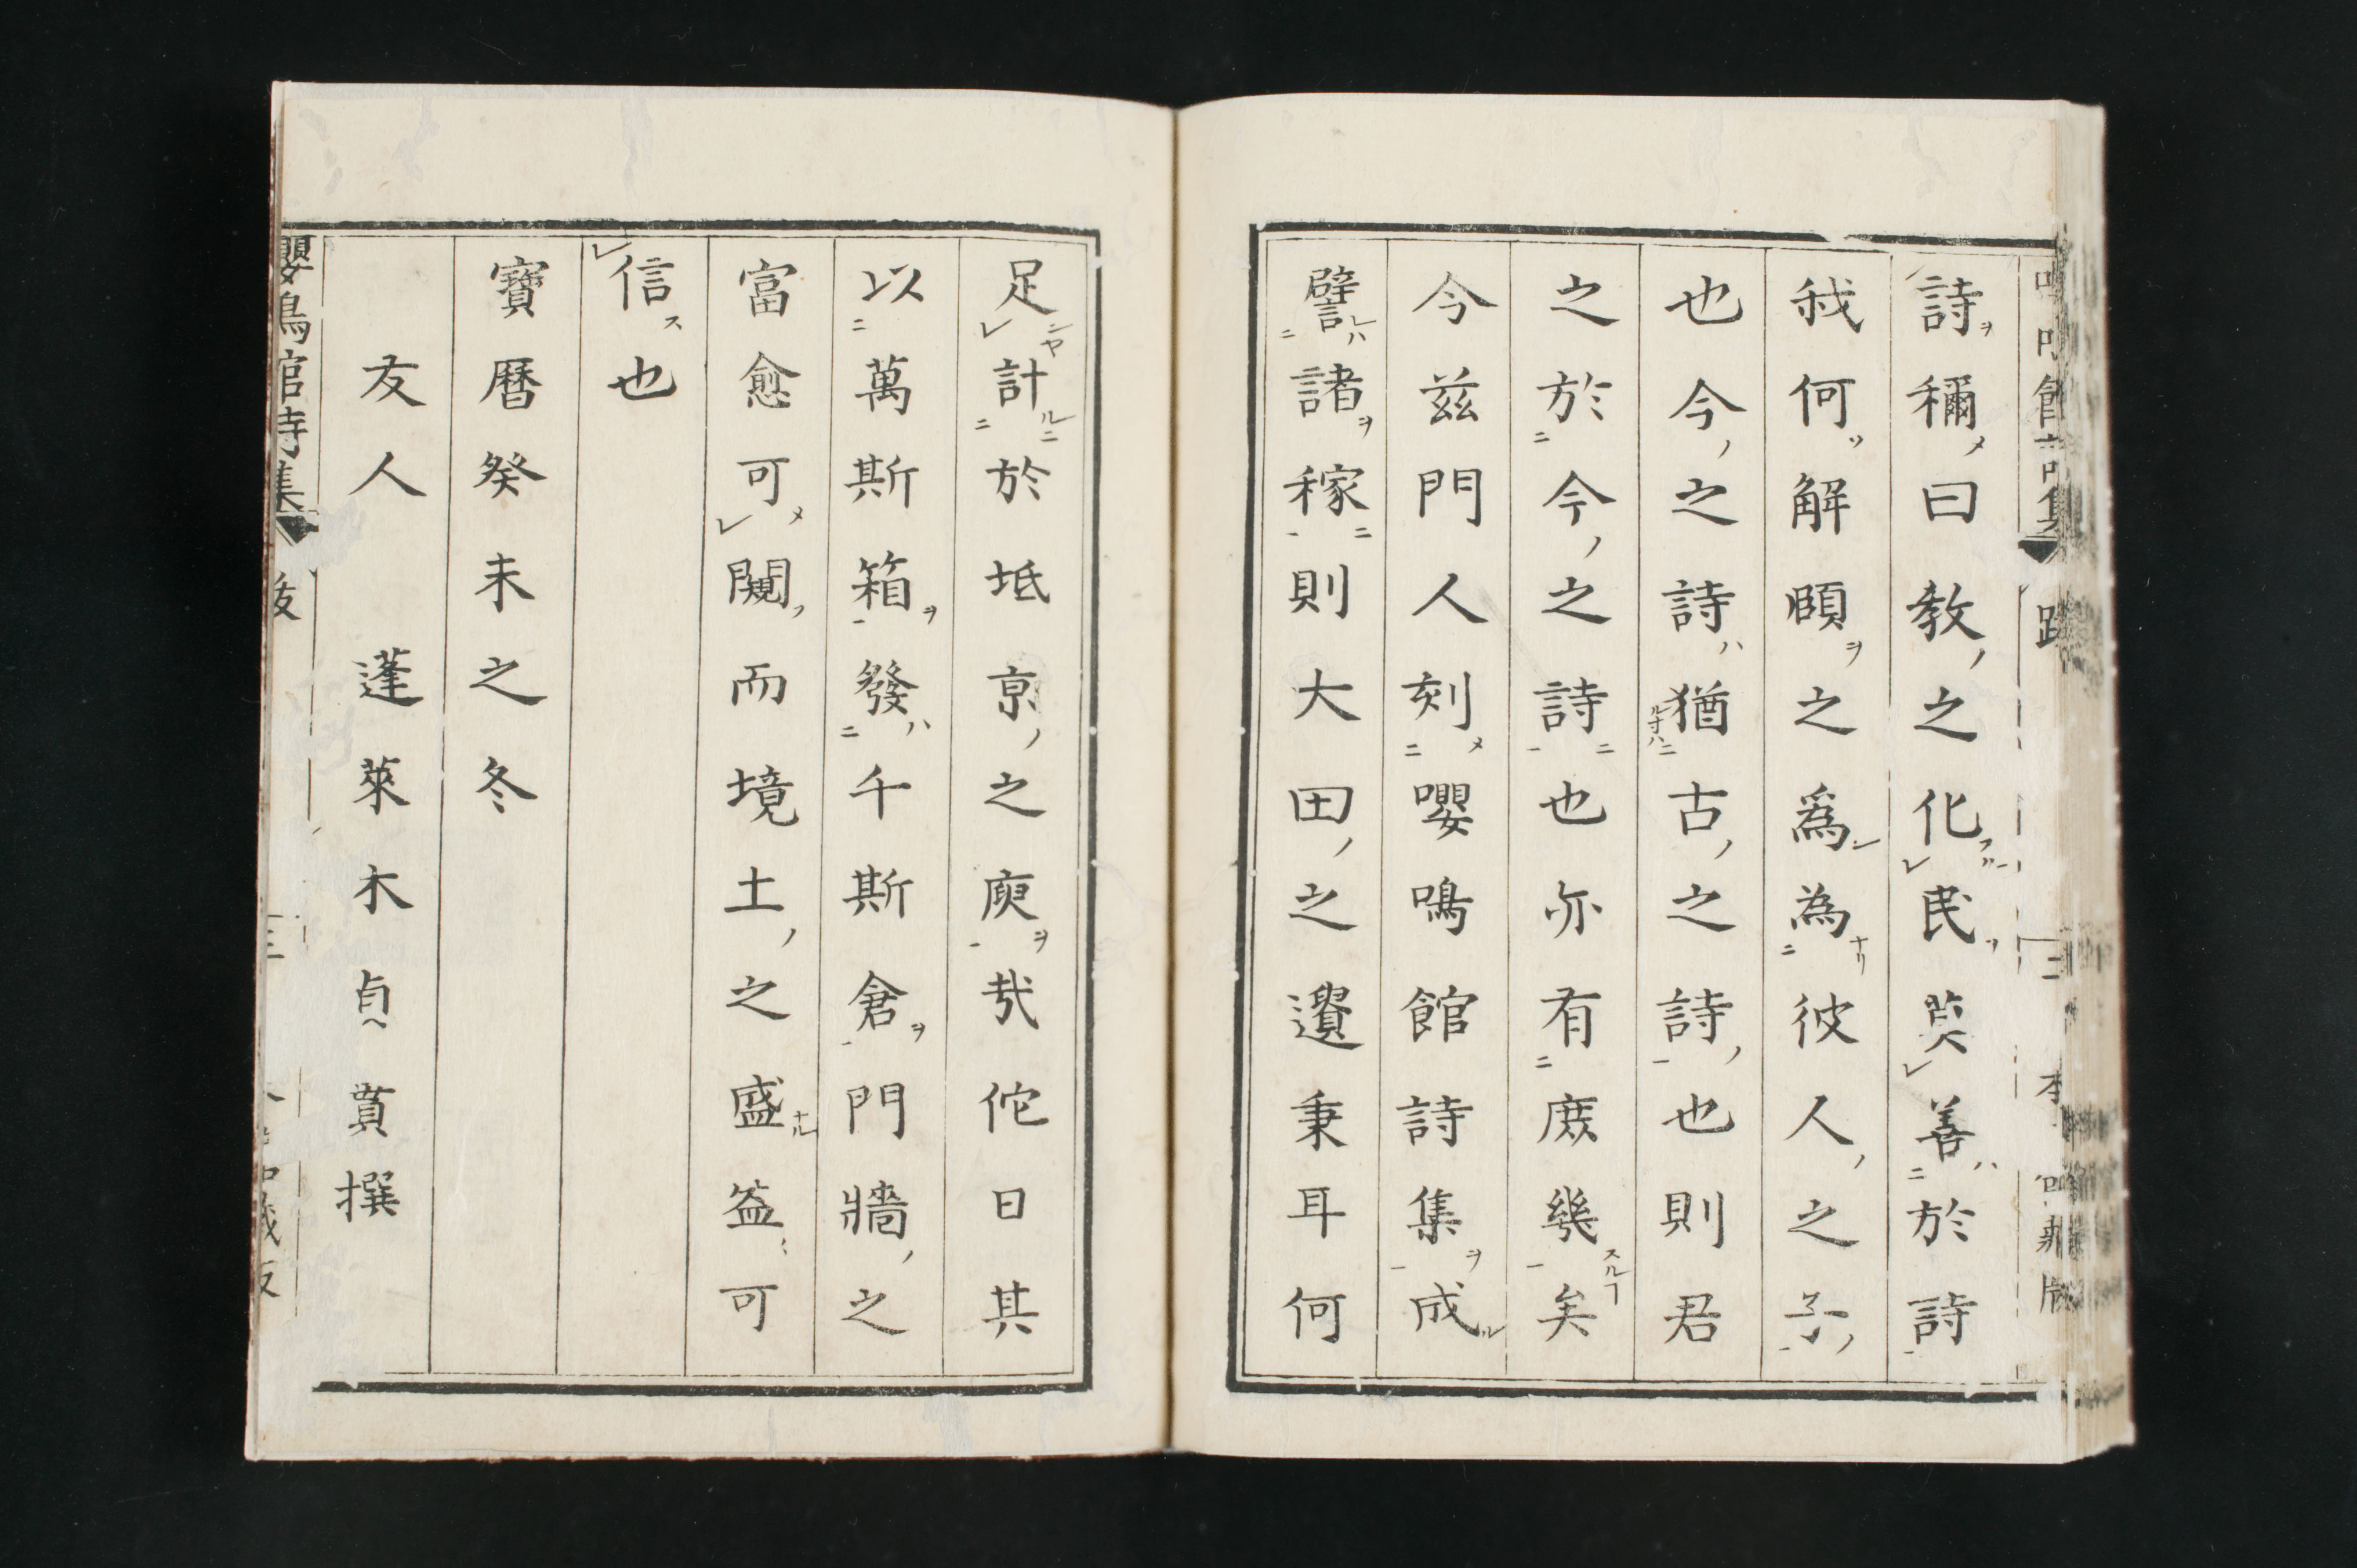 詩稱曰教之化民莫善於詩
我何解頤之爲為彼人之子
也今之詩猶古之詩也則君
之於今之詩也亦有庶幾矣
今茲門人刻嚶鳴館詩集成
譬諸稼則大田之遺秉耳何
足計於坻京之庾哉佗日其
以萬斯箱發千斯倉門牆之
富愈可闚而境土之盛益可
信也
寶曆癸未之冬
友人 蓬萊木貞貫撰
嚶鳴館詩集 跋